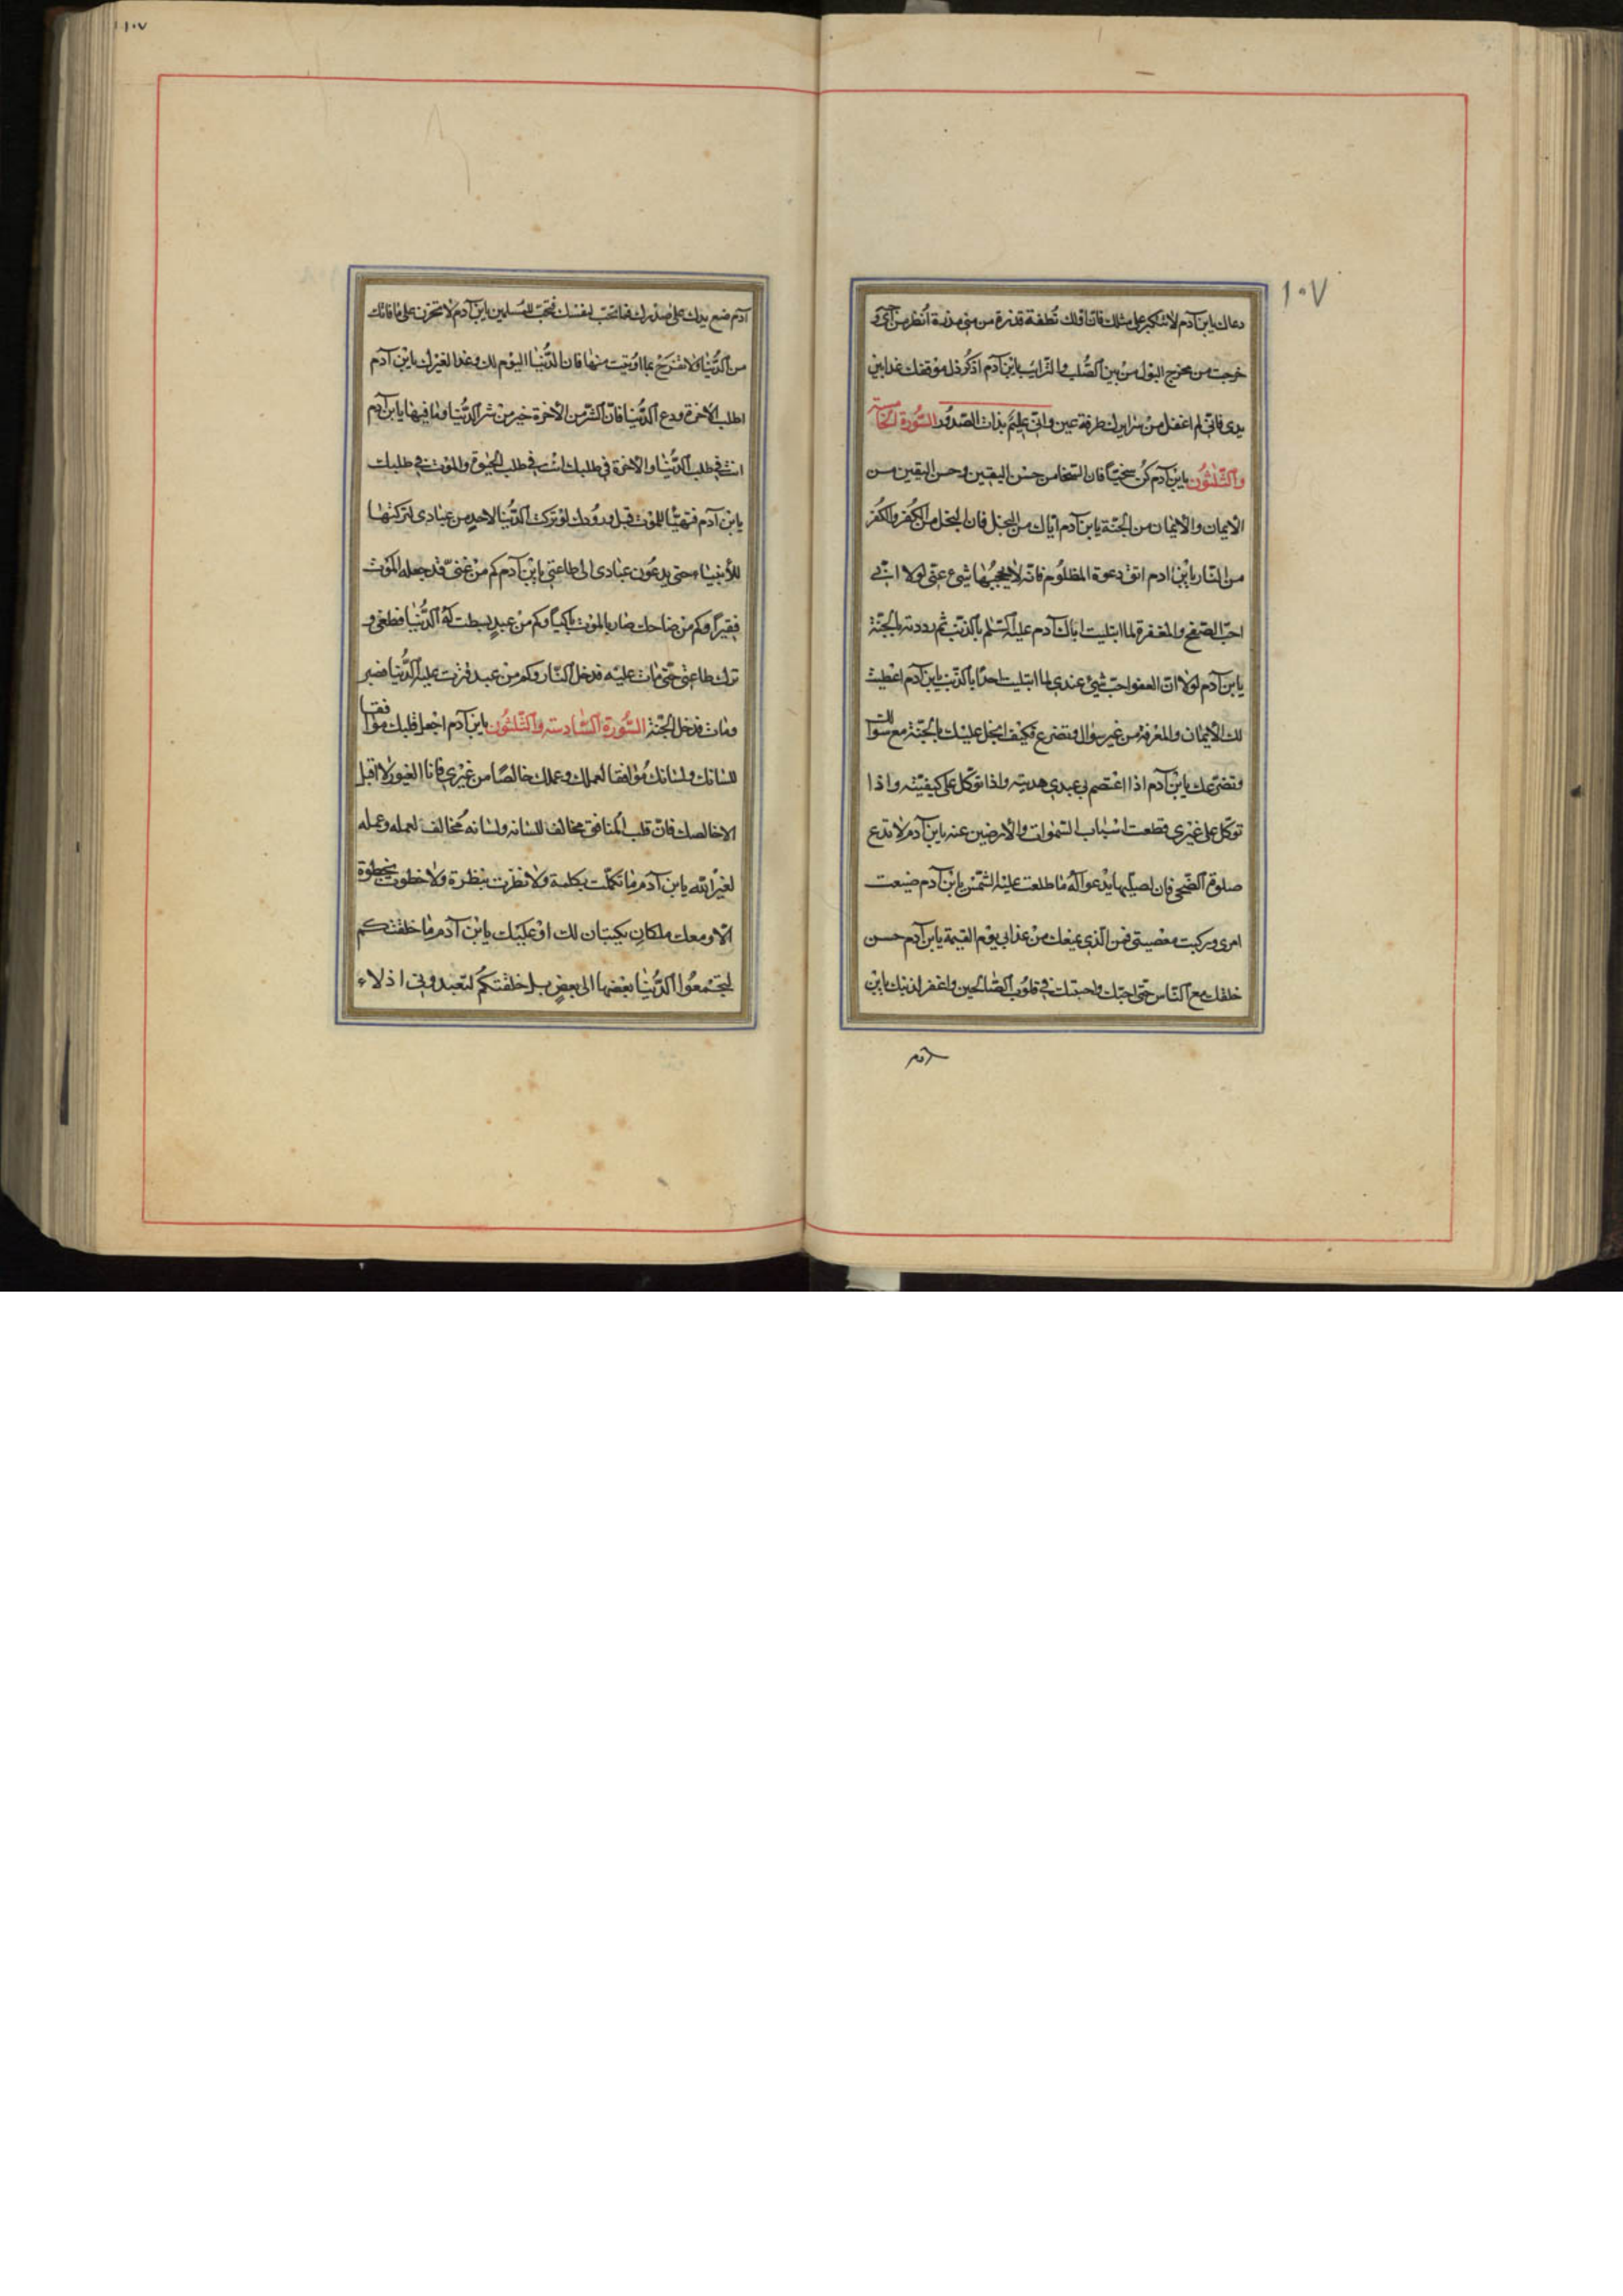 ١٠٧
دعاك يا ابن آدم لا تتكبر على مثلك فان اولك نطفة قذرة من منى مذرة انظر من اى و
خرجت من مخرج البول من بين الصلب والترائب يا ابن آدم اذكر ذل موقفك غدا بين
يدى فانى لم اغفل من سرايرك طرفة عين وانى عليم بذات الصدور السورة الخامسة
والثلثون يا ابن آدم كن سخيا فان السخا من حسن اليقين وحسن اليقين من
الايمان والايمان من الجنة يا ابن آدم اياك من البخل فان البخل من الكفر والكفر
من النار يا ابن ادم اتق دعوة المظلوم فانه لا يحجبها شىء عنى لولا اننى
احب الصفح والمغفرة لما ابتليت اباك آدم عليه السلم بالذنب ثم رددته بالجنة
يا ابن آدم لولا ان العفو احب شىء عندى لما ابتليت احدا بالذنب يا ابن آدم اعطيت
لك الايمان والمعرفة من غير سؤال وتضرع فكيف ابخل عليك بالجنة مع سؤالك
وتضرعك يا ابن آدم اذا اعتصم بى عبدى هديته واذا توكل على كيفيته واذا
توكل على غيرى قطعت اسباب السموات والارضين عنه يا ابن آدم لا تدع
صلوة الضحى فان لصيلها يدعو اله ما طلعت عليه الشمس يا ابن آدم ضيعت
امرى وركبت معصيتى فمن الذى يمنعك من عذابى يوم القيمة يا ابن آدم حسن
خلقك مع الناس حتى احبك واحببتك فى قلوب الصالحين واغفر لذنبك يا ابن
١٠٧
آدم ضع يدك على صدرك فما تحب لنفسك فحب للمسلمين يا ابن آدم لا تحزن على ما فاتك
من الدنيا ولا تفرح بما اوتيت منها فان الدنيا اليوم لك وغدا لغيرك يا ابن آدم
اطلب الاخرة ودع الدنيا فان الشر من الاخرة خير من شر الدنيا وما فيها يا ابن آدم
انت فى طلب الدنيا والاخرة فى طلبك انت فى طلب الحيوة والموت فى طلبك
يا ابن آدم فتهيا للموت قبل ورودك لو تركت الدنيا لاحد من عبادى لتركتها
للأنبياء حتى يدعون عبادى الى طاعتى يا ابن آدم كم من غنى قد جعله الموت
فقيرا وكم من ضاحك صار بالموت باكيا وكم من عبد بسطت له الدنيا فطغى و
ترك طاعتى حتى مات عليه فدخل النار وكم من عبد قترت عليه الدنيا فصبر
ومات فدخل الجنة السورة السادسة والثلثون يا ابن آدم اجعل قلبك موافقا
للسانك ولسانك موافقا لعملك وعملك خالصا من غيرى فانا الغيور لا اقبل
الا خالصك فان قلب المنافق مخالف للسانه ولسانه مخالف لعمله وعمله
لغير الله يا ابن آدم ما تكلمت بكلمة ولا نظرت بنظرة ولا خطوت بخطوة
الا ومعك ملكان يكتبان لك او عليك يا ابن آدم ما خلقتكم
لتجتمعوا الدنيا بعضها الى بعض بل خلقتكم لتعبدونى اذلاء